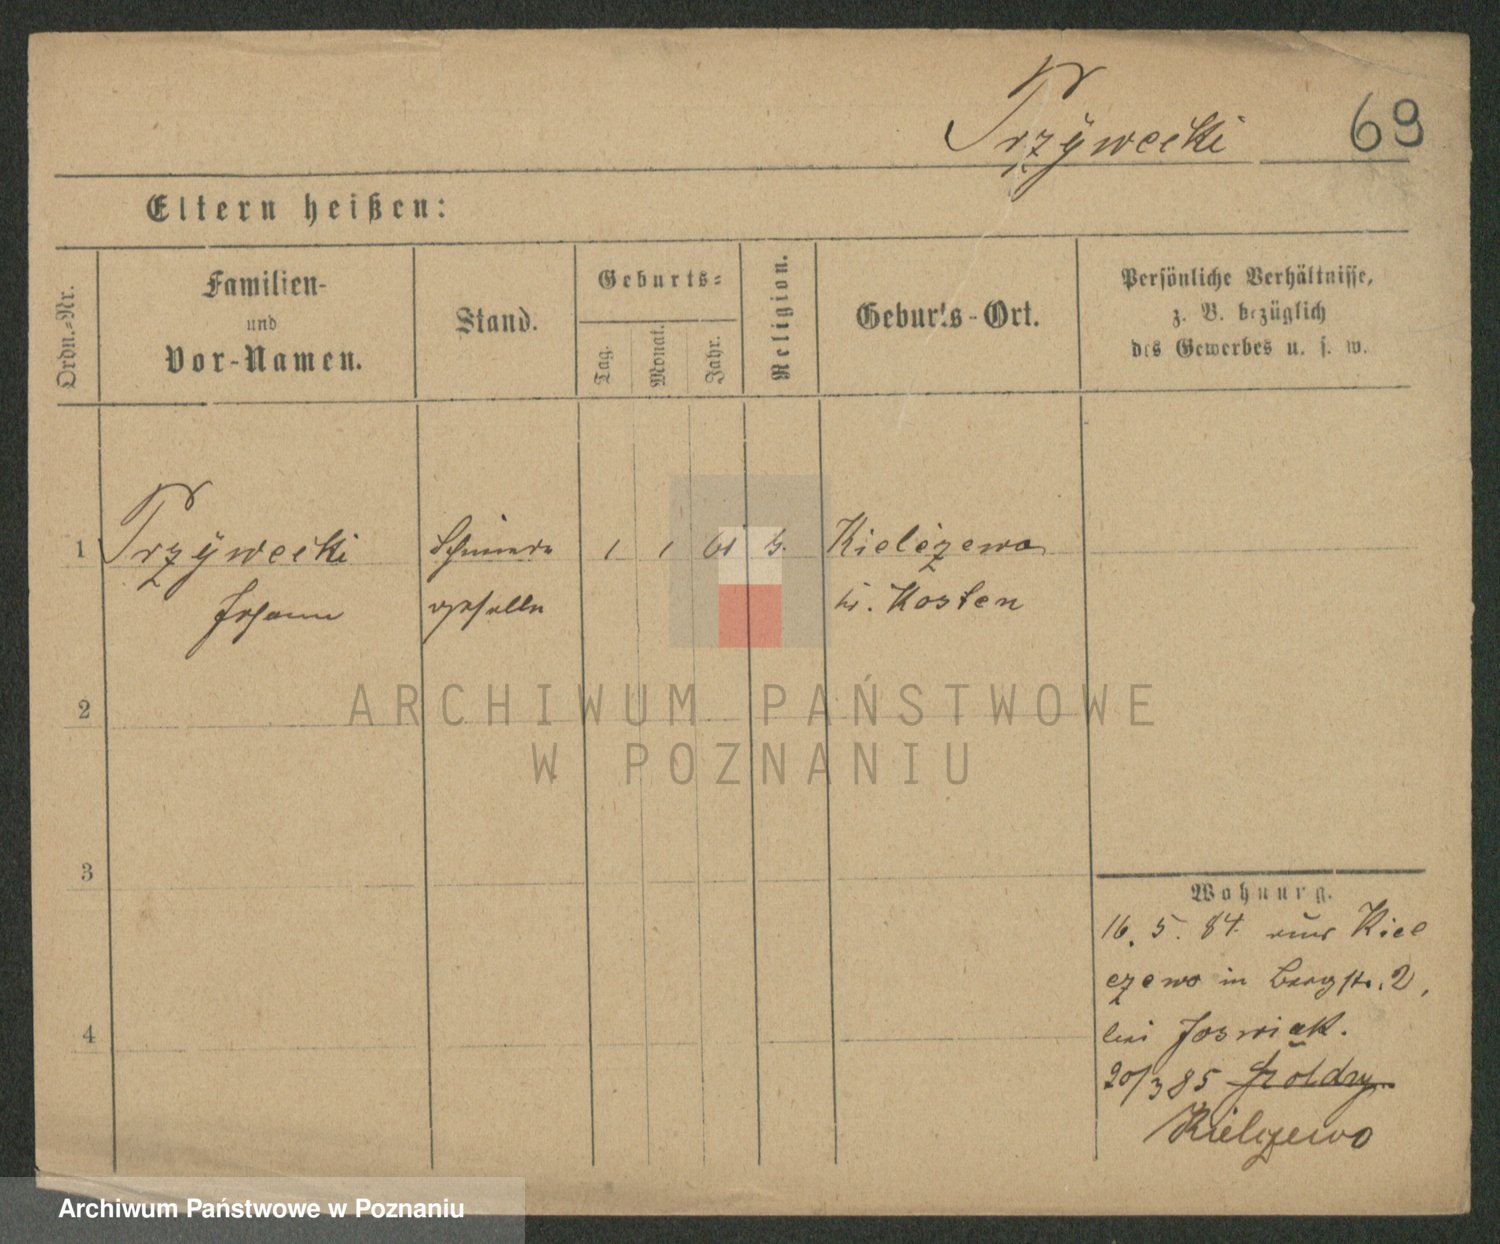 Przÿwecki 69
Eltern heißen:
Ordn.-Nr.
Familien-
und
Vor-Namen.
Stand.
Geburts-
Tag.
Monat.
Jahr.
Religion.
Geburts-Ort.
Persönliche Verhältnisse,
z. B. bezüglich
des Gewerbes u. s. w.
1 Przÿwecki 1 1 61 Kielczewo
Johann geselle Kr. Kosten
2
3
4
Wohnung.
16. 5. 84. aus Kiel
czewo in Bergstr. 2,
bei Joswiak.
20/3 85
Kielczewo
ARCHIWUM PAŃSTWOWE
W POZNANIU
Archiwum Państwowe w Poznaniu